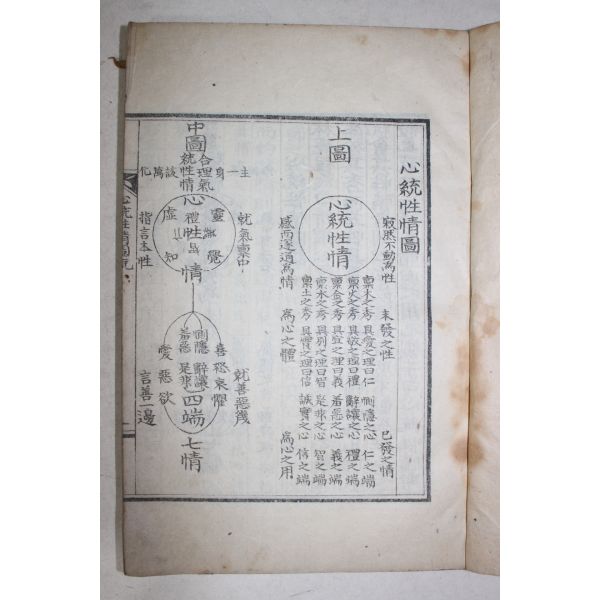 心統性情圖
上圖
寂然不動爲性
未發之性
已發之情
心統性情
稟木之秀 具愛之理曰仁 惻隱之心 仁之端
稟火之秀 具敬之理曰禮 辭讓之心 禮之端
稟金之秀 具宜之理曰義 羞惡之心 義之端
稟水之秀 具別之理曰智 是非之心 智之端
稟土之秀 具實之理曰信 誠實之心 信之端
感而遂通爲情
爲心之體
爲心之用
中圖
合理氣
統性情
主一身
該萬化
心
靈
覺
虛
知
禮
性
就氣稟中
指言本性
情
惻隱
羞惡
辭讓
是非
四端
喜怒哀懼
愛惡欲
就善惡幾
言善一邊
七情
心統性情圖說